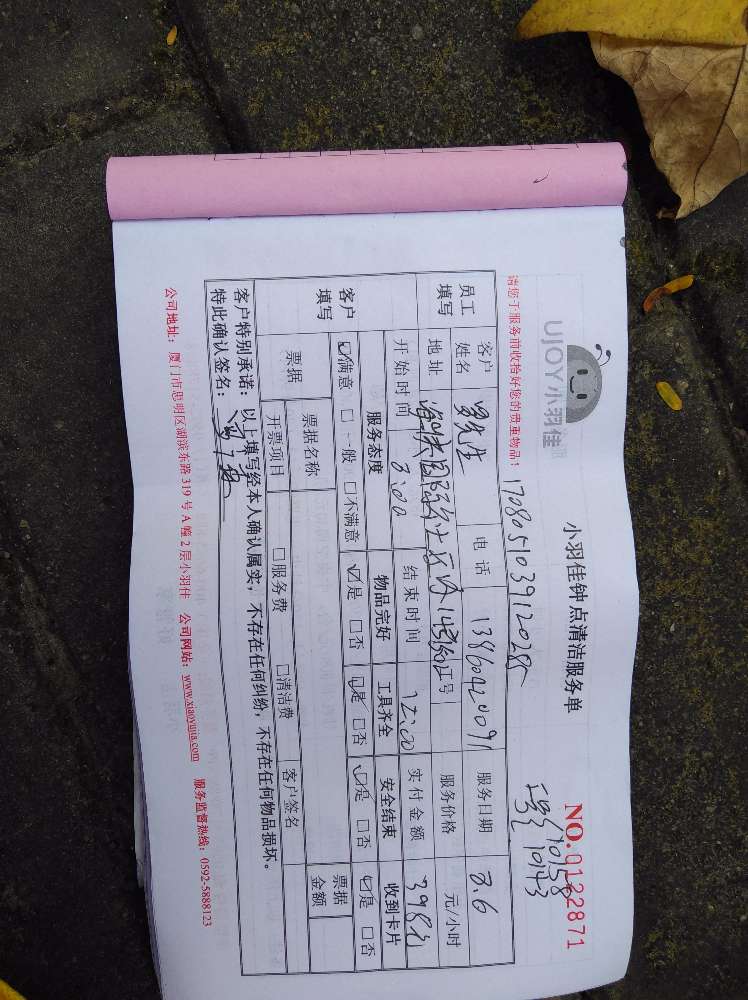 UJOY小羽佳
小羽佳钟点清洁服务单
NO.0122871
请您于服务前收拾好您的贵重物品!
1708051039120285
工号 10158
10143
员工填写 客户姓名 先生 电话 13860420091 服务日期 8.6
地址 工号 服务价格 元/小时
开始时间 8:00 结束时间 12:00 实付金额 398元
客户填写 服务态度 物品完好 工具齐全 安全结束 收到卡片
☑满意 □一般 □不满意 ☑是 □否 ☑是 □否 ☑是 □否 ☑是 □否
票据 票据名称 票据金额
开票项目 □服务费 □清洁费 客户签名
客户特别承诺:以上填写经本人确认属实,不存在任何纠纷,不存在任何物品损坏。
特此确认签名:
公司地址:厦门市思明区湖滨东路319号A幢2层小羽佳 公司网站:www.xiaoyujia.com 服务监督热线:0592-5888123